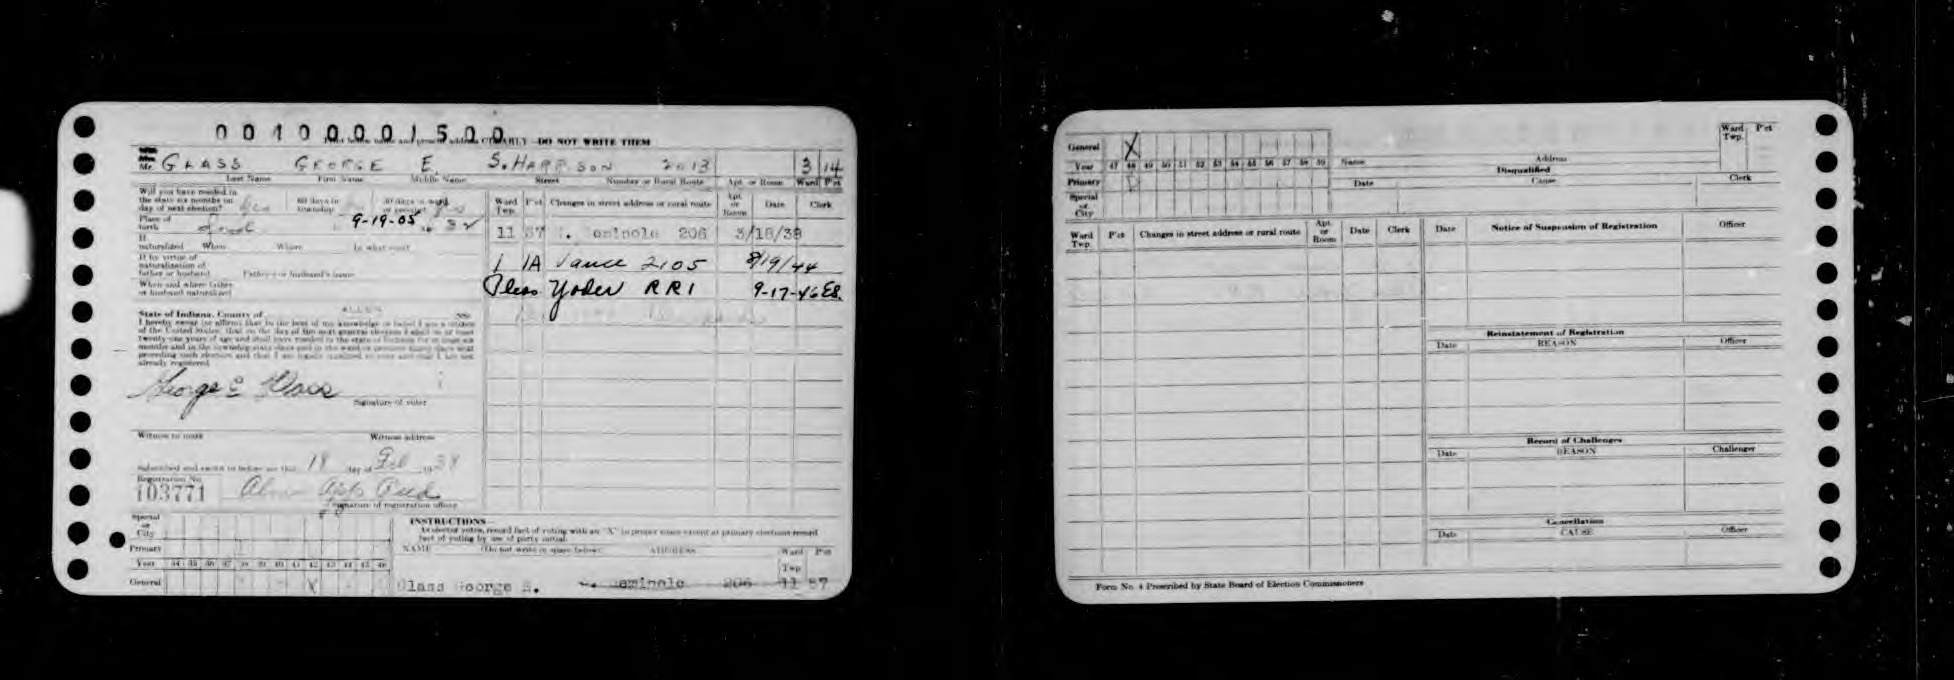 00100001500
Print below name and present address CLEARLY—DO NOT WRITE THEM
Mr. GLASS GEORGE E. S. HARRISON 2013 3 14
Last Name First Name Middle Name Street Number or Rural Route Apt. or Room Ward P'ct
Will you have resided in
the state six months on
day of next election? Yes 60 days in township 30 days in ward or precinct Yes
Place of
birth Ind 9-19-05
If
naturalized When Where In what court
If by virtue of
naturalization of
father or husband Father's or husband's name
When and where father
or husband naturalized
Ward Twp. P'ct Changes in street address or rural route Apt. or Room Date Clerk
11 57 eminole 206 3/18/38
1 1A Vance 2105 8/19/44
Pleas Yoder RR1 9-17-46 ES.
State of Indiana, County of ALLEN SS:
I hereby swear (or affirm) that to the best of my knowledge or belief I am a citizen
of the United States, that on the day of the next general election I shall be at least
twenty-one years of age and shall have resided in the state of Indiana for at least six
months and in the township sixty days and in the ward or precinct thirty days next
preceding such election and that I am legally qualified to vote and that I am not
already registered.
George E Glass
Signature of voter
Witness to mark Witness address
Subscribed and sworn to before me this 18 day of Feb 1938
Registration No.
103771
Signature of registration officer
Special
or
City
Primary
Year 34 35 36 37 38 39 40 41 42 43 44 45 46
General X
INSTRUCTIONS—
As elector votes, record fact of voting with an "X" in proper space except at primary elections record
fact of voting by use of party initial.
NAME (Do not write in space below) ADDRESS Ward Twp P'ct
Glass George E. eminole 206 11 57
General X
Year 47 48 49 50 51 52 53 54 55 56 57 58 59
Primary
Special
or
City
Name Address Ward Twp. P'ct
Disqualified
Date Cause Clerk
Ward Twp. P'ct Changes in street address or rural route Apt. or Room Date Clerk
Date Notice of Suspension of Registration Officer
Reinstatement of Registration
Date REASON Officer
Record of Challenges
Date REASON Challenger
Cancellation
Date CAUSE Officer
Form No. 4 Prescribed by State Board of Election Commissioners